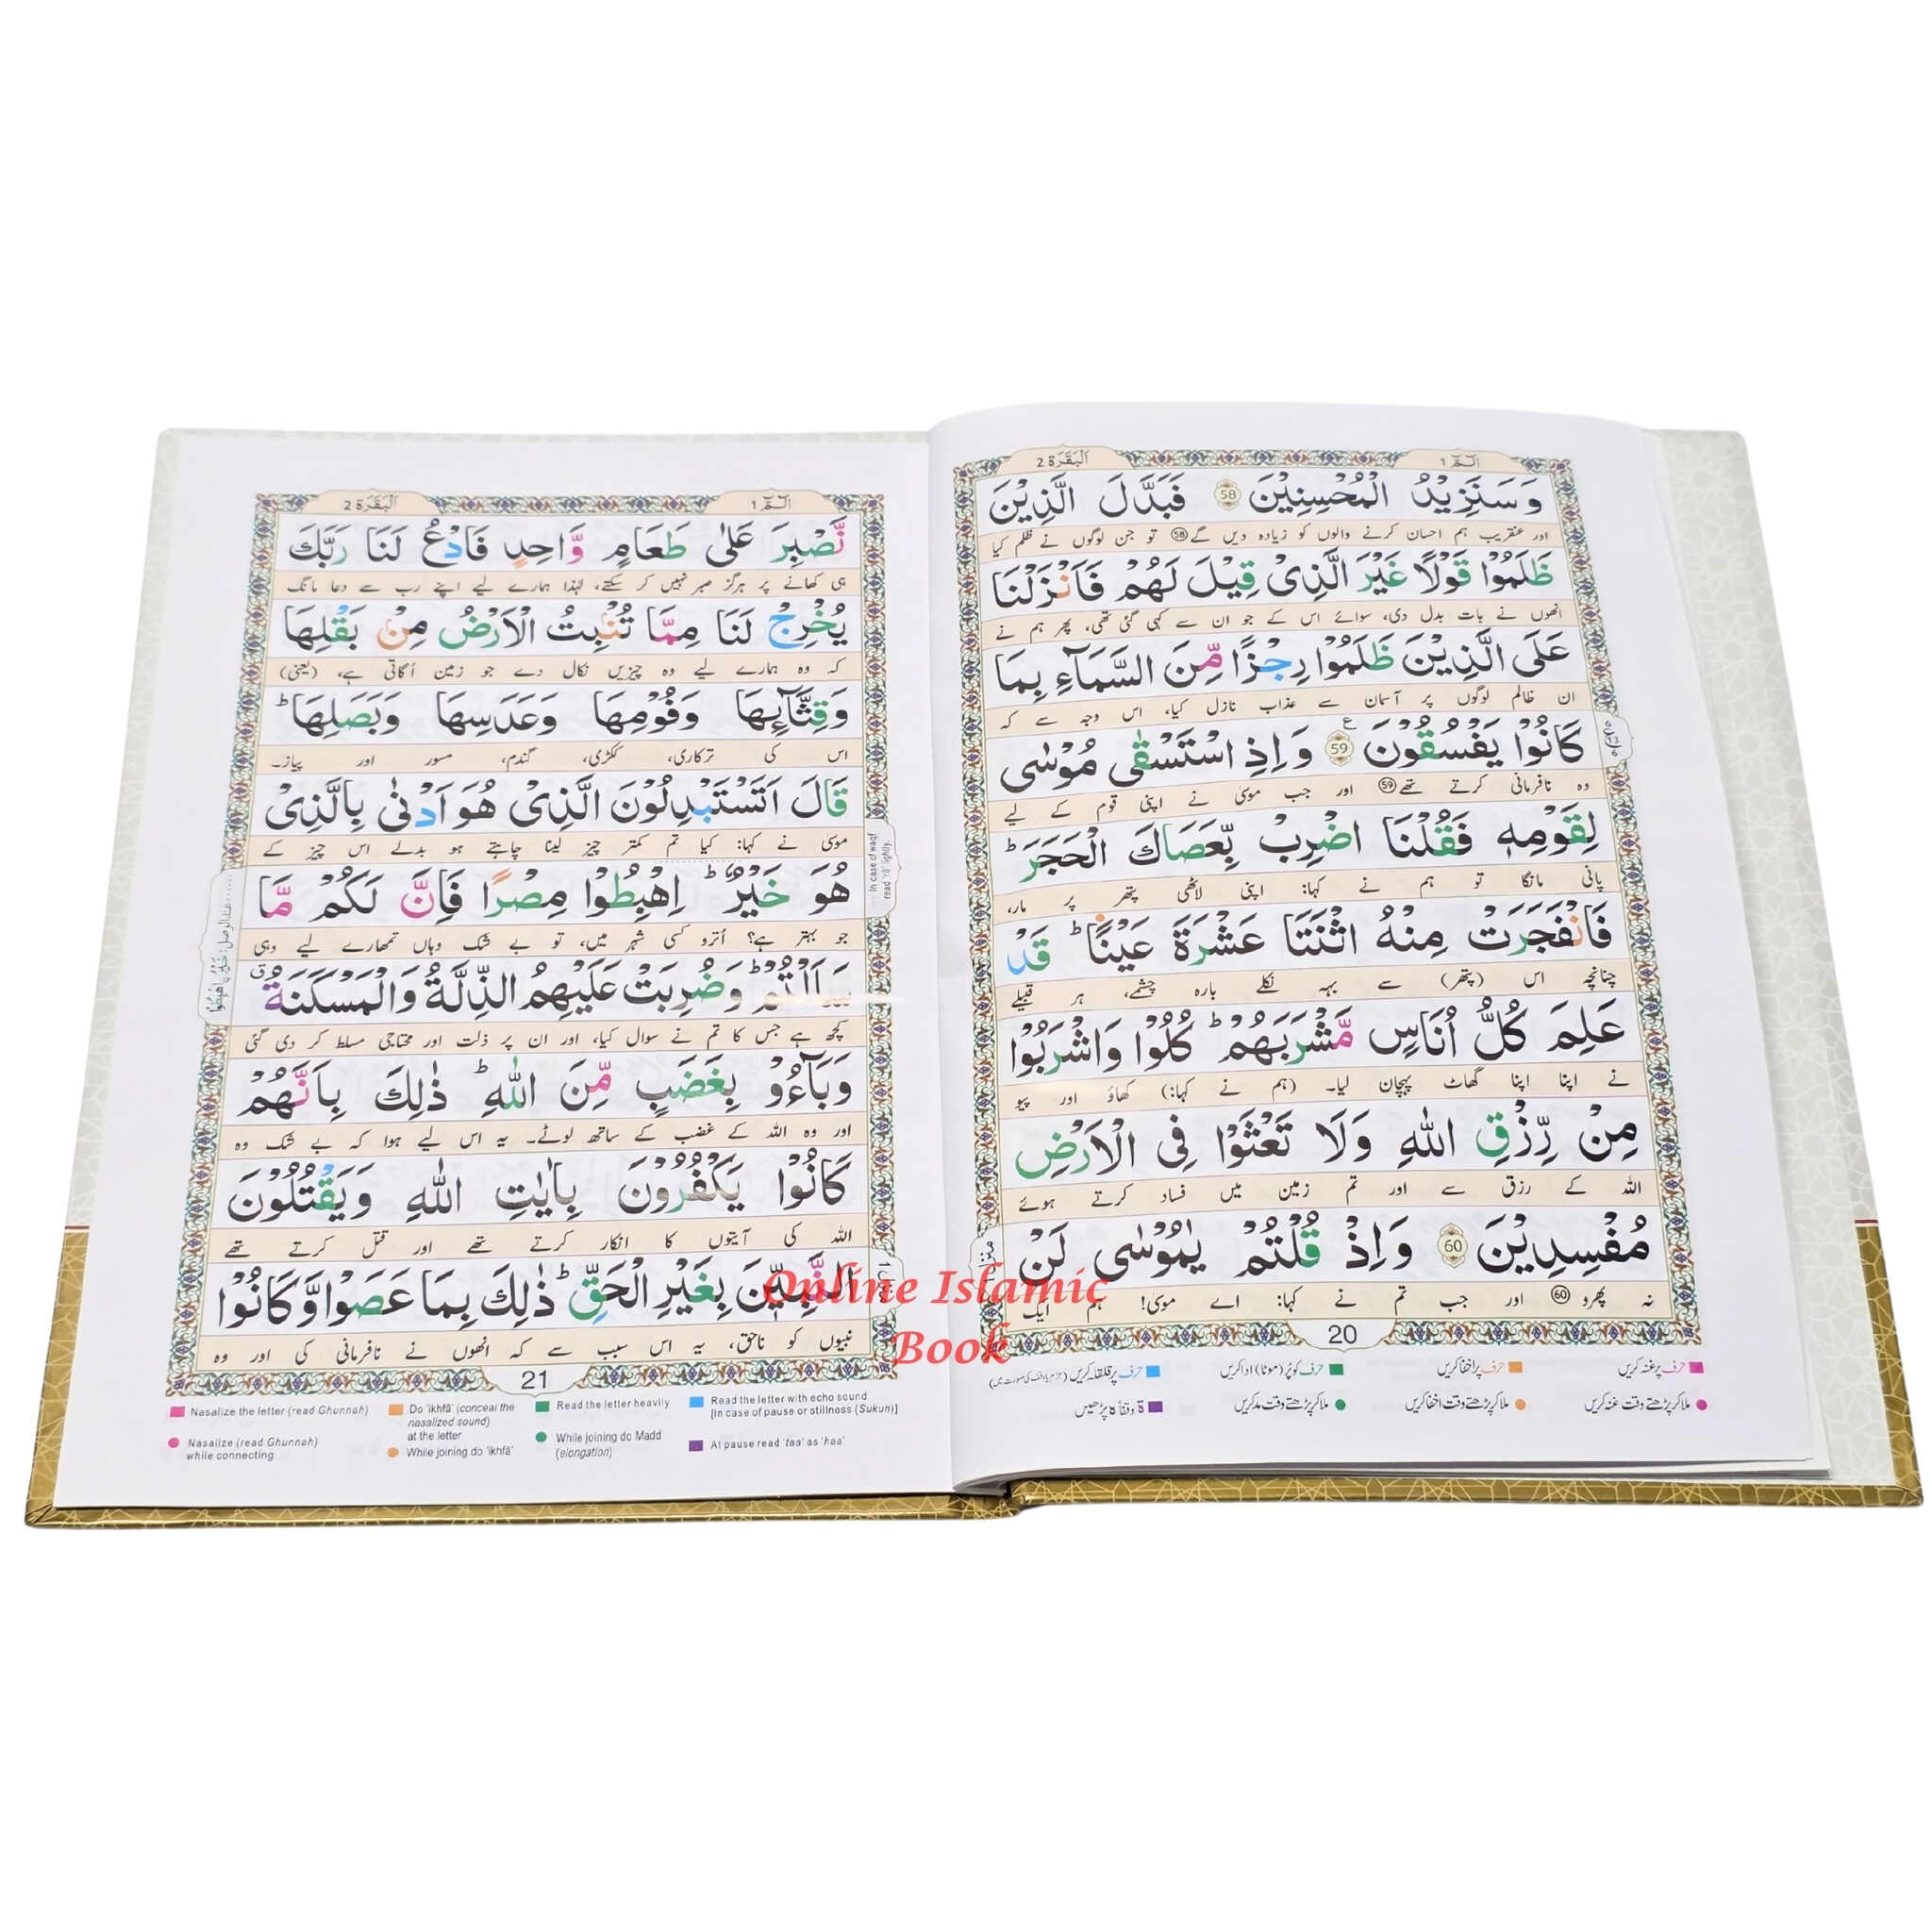 الٓمّٓ 1
اَلْبَقَرَة 2
وَسَنَزِيْدُ الْمُحْسِنِيْنَ 58 فَبَدَّلَ الَّذِيْنَ
اور عنقریب ہم احسان کرنے والوں کو زیادہ دیں گے 58 تو جن لوگوں نے ظلم کیا
ظَلَمُوْا قَوْلًا غَيْرَ الَّذِيْ قِيْلَ لَهُمْ فَاَنْزَلْنَا
انھوں نے بات بدل دی، سوائے اس کے جو ان سے کہی گئی تھی، پھر ہم نے
عَلَى الَّذِيْنَ ظَلَمُوْا رِجْزًا مِّنَ السَّمَآءِ بِمَا
ان ظالم لوگوں پر آسمان سے عذاب نازل کیا، اس وجہ سے کہ
كَانُوْا يَفْسُقُوْنَ ع 59 وَاِذِ اسْتَسْقٰى مُوْسٰى
وہ نافرمانی کرتے تھے 59 اور جب موسیٰ نے اپنی قوم کے لیے
لِقَوْمِهٖ فَقُلْنَا اضْرِبْ بِّعَصَاكَ الْحَجَرَ ؕ
پانی مانگا تو ہم نے کہا: اپنی لاٹھی پتھر پر مار،
فَانْفَجَرَتْ مِنْهُ اثْنَتَا عَشْرَةَ عَيْنًا ؕ قَدْ
چنانچہ اس (پتھر) سے بہہ نکلے بارہ چشمے، ہر قبیلے
عَلِمَ كُلُّ اُنَاسٍ مَّشْرَبَهُمْ ؕ كُلُوْا وَاشْرَبُوْا
نے اپنا اپنا گھاٹ پہچان لیا۔ (ہم نے کہا:) کھاؤ اور پیو
مِنْ رِّزْقِ اللّٰهِ وَلَا تَعْثَوْا فِى الْاَرْضِ
اللہ کے رزق سے اور تم زمین میں فساد کرتے ہوئے
مُفْسِدِيْنَ 60 وَاِذْ قُلْتُمْ يٰمُوْسٰى لَنْ
نہ پھرو 60 اور جب تم نے کہا: اے موسیٰ! ہم ایک
20
حرف پر غنہ کریں
حرف پر اخفا کریں
حرف کو پُر (موٹا) ادا کریں
حرف پر قلقلہ کریں
ملا کر پڑھتے وقت غنہ کریں
ملا کر پڑھتے وقت اخفا کریں
ملا کر پڑھتے وقت مد کریں
ۃ وقفاً ہ پڑھیں
الٓمّٓ 1
اَلْبَقَرَة 2
نَّصْبِرَ عَلٰى طَعَامٍ وَّاحِدٍ فَادْعُ لَنَا رَبَّكَ
ہی کھانے پر ہرگز صبر نہیں کر سکتے، لہٰذا ہمارے لیے اپنے رب سے دعا مانگ
يُخْرِجْ لَنَا مِمَّا تُنْۢبِتُ الْاَرْضُ مِنْۢ بَقْلِهَا
کہ وہ ہمارے لیے وہ چیزیں نکال دے جو زمین اُگاتی ہے، (یعنی)
وَقِثَّآئِهَا وَفُوْمِهَا وَعَدَسِهَا وَبَصَلِهَا ؕ
اس کی ترکاری، ککڑی، گندم، مسور اور پیاز۔
قَالَ اَتَسْتَبْدِلُوْنَ الَّذِيْ هُوَ اَدْنٰى بِالَّذِيْ
موسیٰ نے کہا: کیا تم کمتر چیز لینا چاہتے ہو بدلے اس چیز کے
هُوَ خَيْرٌ ؕ اِهْبِطُوْا مِصْرًا فَاِنَّ لَكُمْ مَّا
جو بہتر ہے؟ اُترو کسی شہر میں، تو بے شک وہاں تمھارے لیے وہی
سَاَلْتُمْ ؕ وَضُرِبَتْ عَلَيْهِمُ الذِّلَّةُ وَالْمَسْكَنَةُ ق
کچھ ہے جس کا تم نے سوال کیا، اور ان پر ذلت اور محتاجی مسلط کر دی گئی
وَبَآءُوْ بِغَضَبٍ مِّنَ اللّٰهِ ؕ ذٰلِكَ بِاَنَّهُمْ
اور وہ اللہ کے غضب کے ساتھ لوٹے۔ یہ اس لیے ہوا کہ بے شک وہ
كَانُوْا يَكْفُرُوْنَ بِاٰيٰتِ اللّٰهِ وَيَقْتُلُوْنَ
اللہ کی آیتوں کا انکار کرتے تھے اور قتل کرتے تھے
النَّبِيّٖنَ بِغَيْرِ الْحَقِّ ؕ ذٰلِكَ بِمَا عَصَوْا وَّكَانُوْا
نبیوں کو ناحق، یہ اس سبب سے کہ انھوں نے نافرمانی کی اور وہ
21
In case of waqf
read lightly.
Nasalize the letter (read Ghunnah)
Do 'ikhfā' (conceal the nasalized sound) at the letter
Read the letter heavily
Read the letter with echo sound [in case of pause or stillness (Sukun)]
Nasalize (read Ghunnah) while connecting
While joining do 'ikhfā'
While joining do Madd (elongation)
At pause read 'taa' as 'haa'
Online Islamic
Book